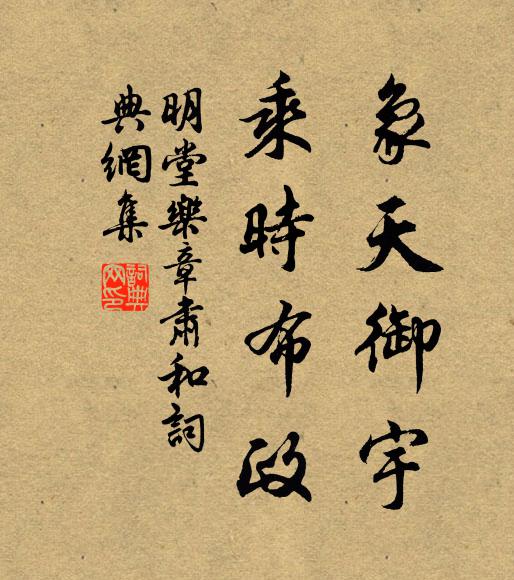 象天御宇
乘時布政
明堂樂章肅和詞
典網集
詞典網印